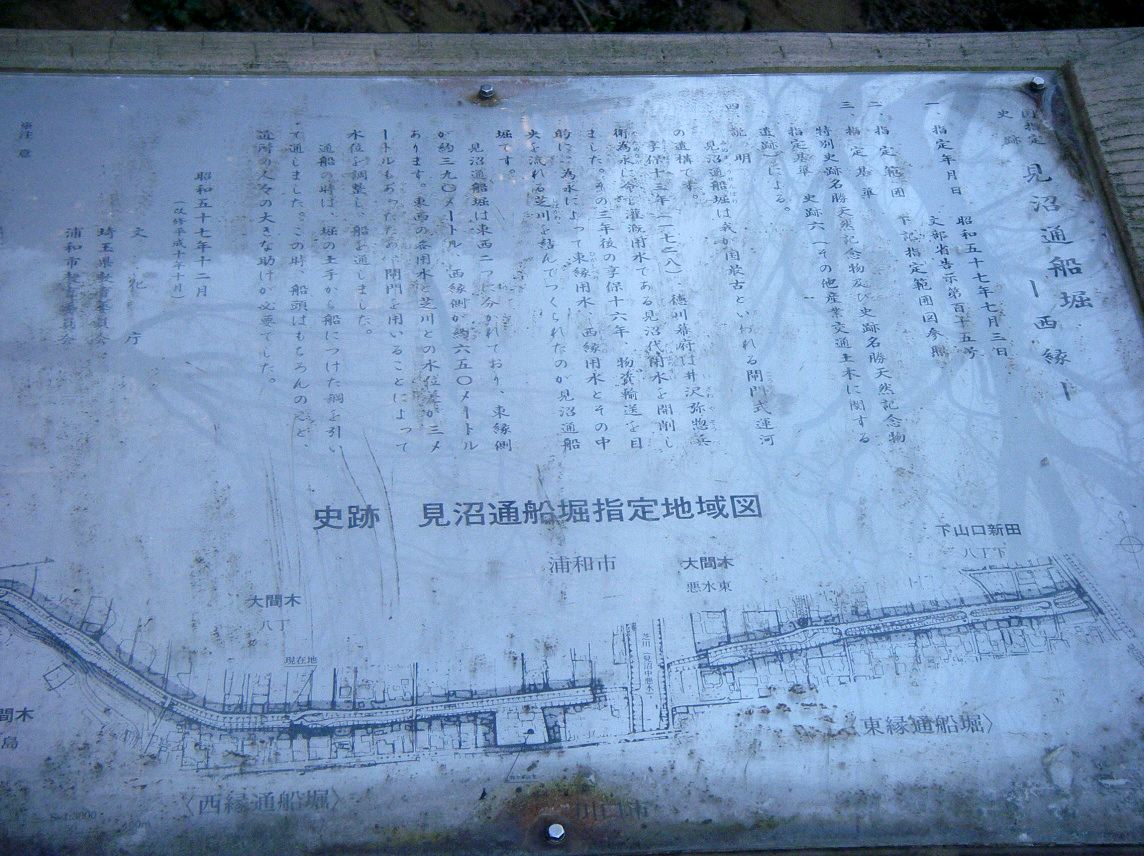 国指定
史跡
見沼通船堀ー西縁ー
一、指定年月日 昭和五十七年七月三日
文部省告示第百十五号
二、指定範囲 下記指定範囲図参照
三、指定基準
特別史跡名勝天然記念物及び史跡名勝天然記念物
指定基準 史跡六(その他産業交通土木に関する
遺跡)による。
四、説明
見沼通船堀は我が国最古といわれる閘門式運河
の遺構です。
享保十三年(一七二八)、徳川幕府は井沢弥惣兵
衛為永に命じ灌漑用水である見沼代用水を開削し
ました。その三年後の享保十六年、物資輸送を目
的に、為永によって東縁用水、西縁用水とその中
央を流れる芝川を結んでつくられたのが見沼通船
堀です。
見沼通船堀は東西二つに分かれており、東縁側
が約三九〇メートル、西縁側が約六五〇メートル
あります。東西の各用水と芝川との水位差が三メ
ートルもあったため、閘門を用いることによって
水位を調整し、船を通しました。
通船の時は、堀の土手から船につけた綱を引い
て通しました。この時、船頭はもちろんのこと、
近所の人々の大きな助けが必要でした。
昭和五十七年十二月
(改修平成十年十月)
文化庁
埼玉県教育委員会
浦和市教育委員会
※注意
史跡 見沼通船堀指定地域図
下山口新田
八丁下
浦和市
大間木
悪水東
大間木
八丁
芝川(見沼中悪水)
現在地
間木
島
〈東縁通船堀〉
〈西縁通船堀〉
川口市
S=1:3000